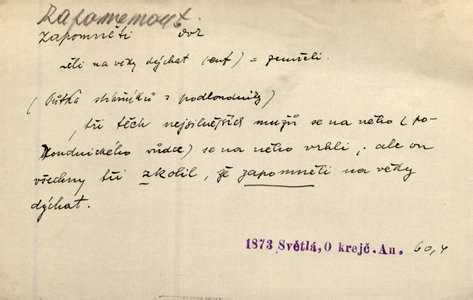 Zapomenout.
zapomněti dok
-ěli na věky dýchat (euf) = zemřeli.
(Půtka strážníků s podloudníky)
, tři těch nejsilnějších mužů se na něho (po-
loudnického vůdce) se na něho vrhli, ale on
všechny tři zkolil, že zapomněli na věky
dýchat.
1873 Světlá, O krejč. An. 60,4